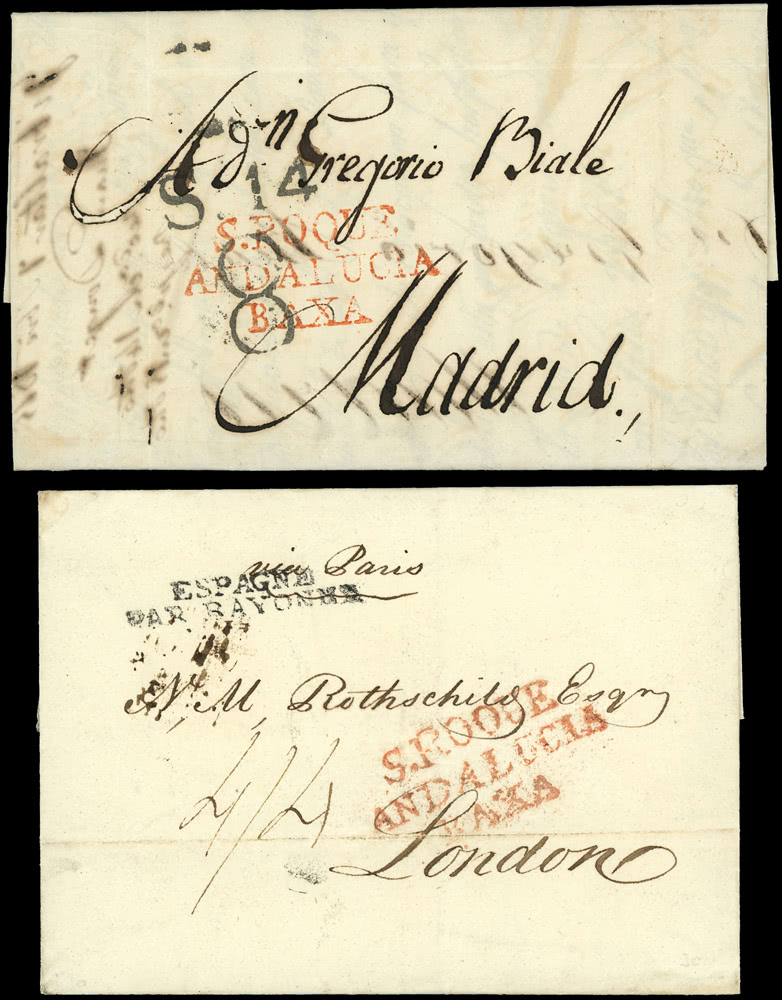 A dn Gregorio Biale
S. 14
S. ROQUE
ANDALUCIA
BAXA
8
8
Madrid.
via Paris
ESPAGNE
PAR BAYONNE
N. M. Rothschild Esqr
S. ROQUE
ANDALUCIA
BAXA
4/4
London